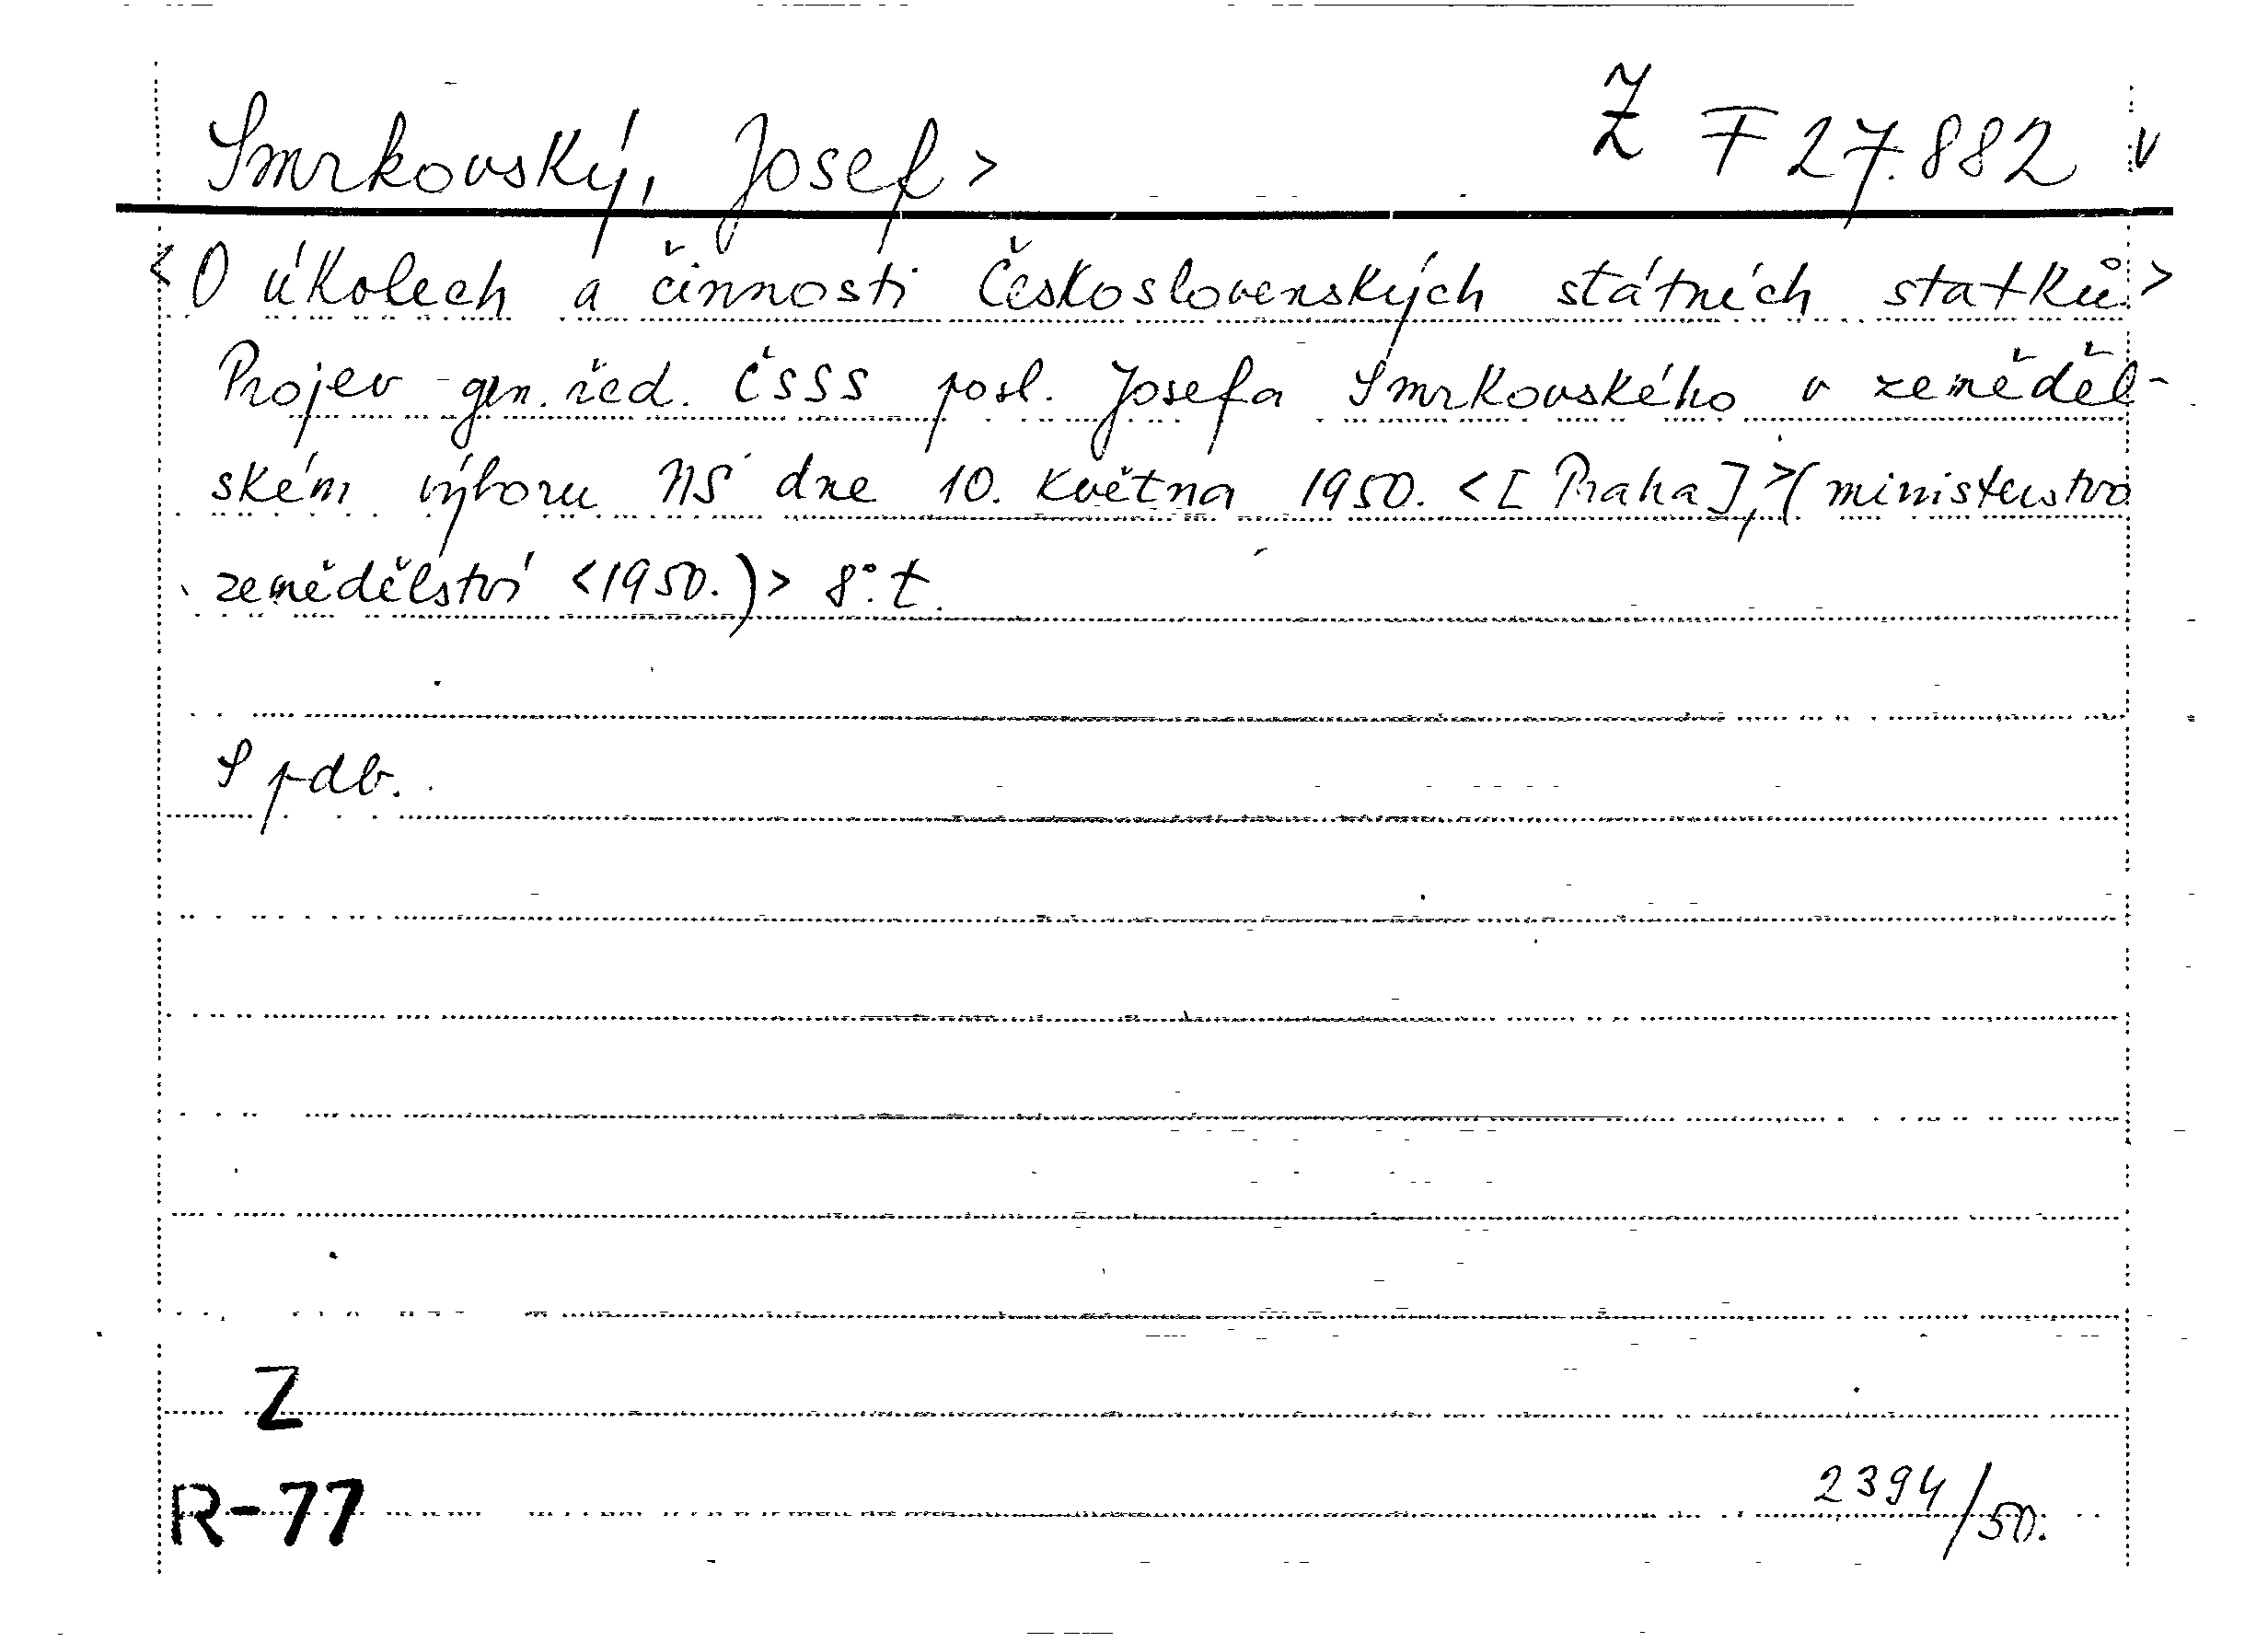 Smrkovský, Josef> Ž F 27.882 v
<O úkolech a činnosti Československých státních statků>
Projev gen. řed. ČSSS posl. Josefa Smrkovského v zeměděl-
ském výboru NS dne 10. května 1950. <[Praha],>(ministerstvo
zemědělství <1950.)> 8°. t.
S pdb.
Z
R-77 2394/50.